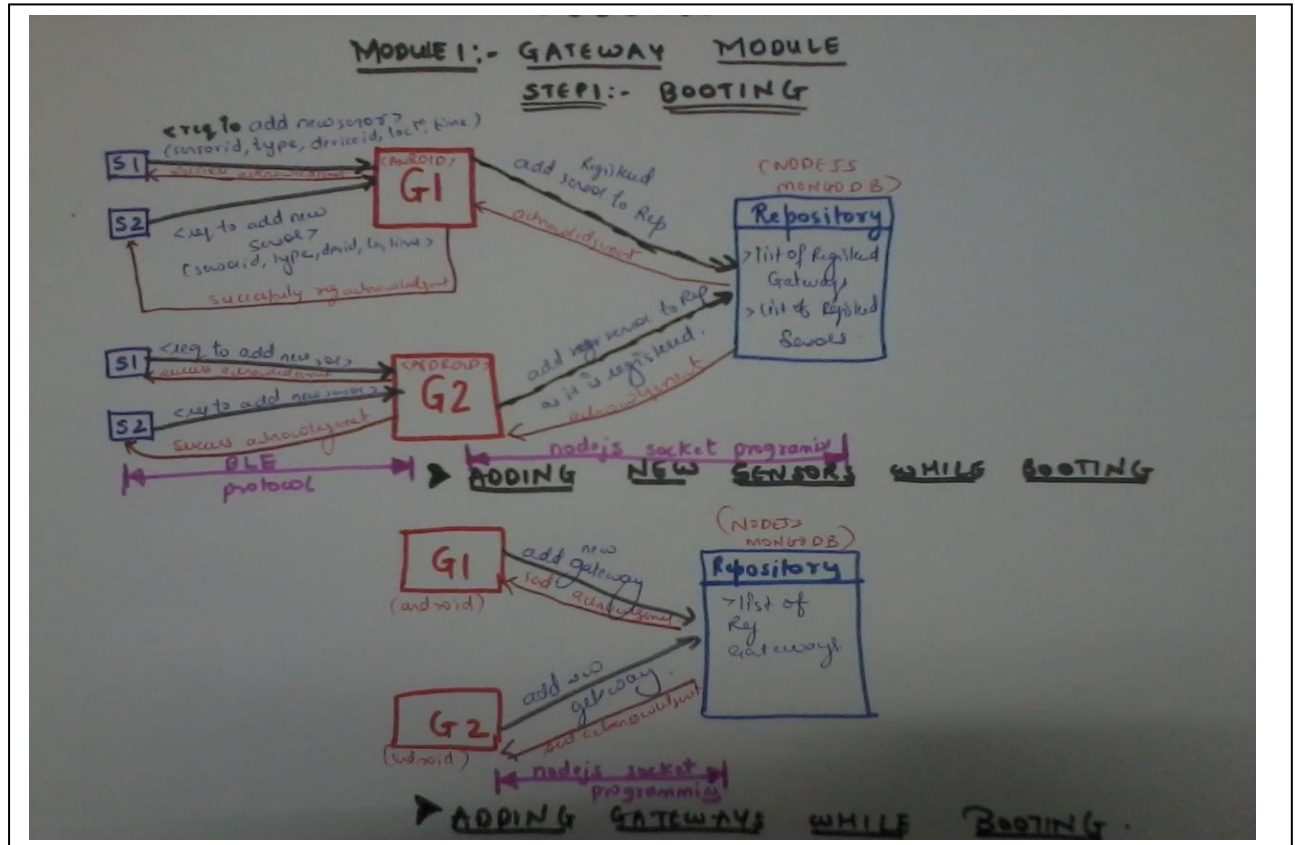 MODULE 1:- GATEWAY MODULE
STEP1:- BOOTING
<req to add new sensor>
(sensorid, type, deviceid, locn, time)
S1
success acknowledgment
<ANROID>
G1
S2
<req to add new
sensor>
(sensorid, type, devid, time>
succesfuly reg acknowledgment
add Registered
sensor to Rep
acknowledgment
(NODEJS
MONGODB)
Repository
>list of Registered
Gateways
>List of Registed
Sensors
S1
<req to add new
success
<ANDROID>
G2
S2
<req to add new sensor>
success
add sensor to Rep
as it is registered.
acknowledgment
BLE
protocol
nodejs socket
➤ ADDING NEW SENSORS WHILE BOOTING
G1
(android)
add new
gateway
(NODEJS
MONGODB)
Repository
>list of
Reg
Gateways
G2
(android)
add new
gateway.
nodejs socket
programming
➤ ADDING GATEWAYS WHILE BOOTING.